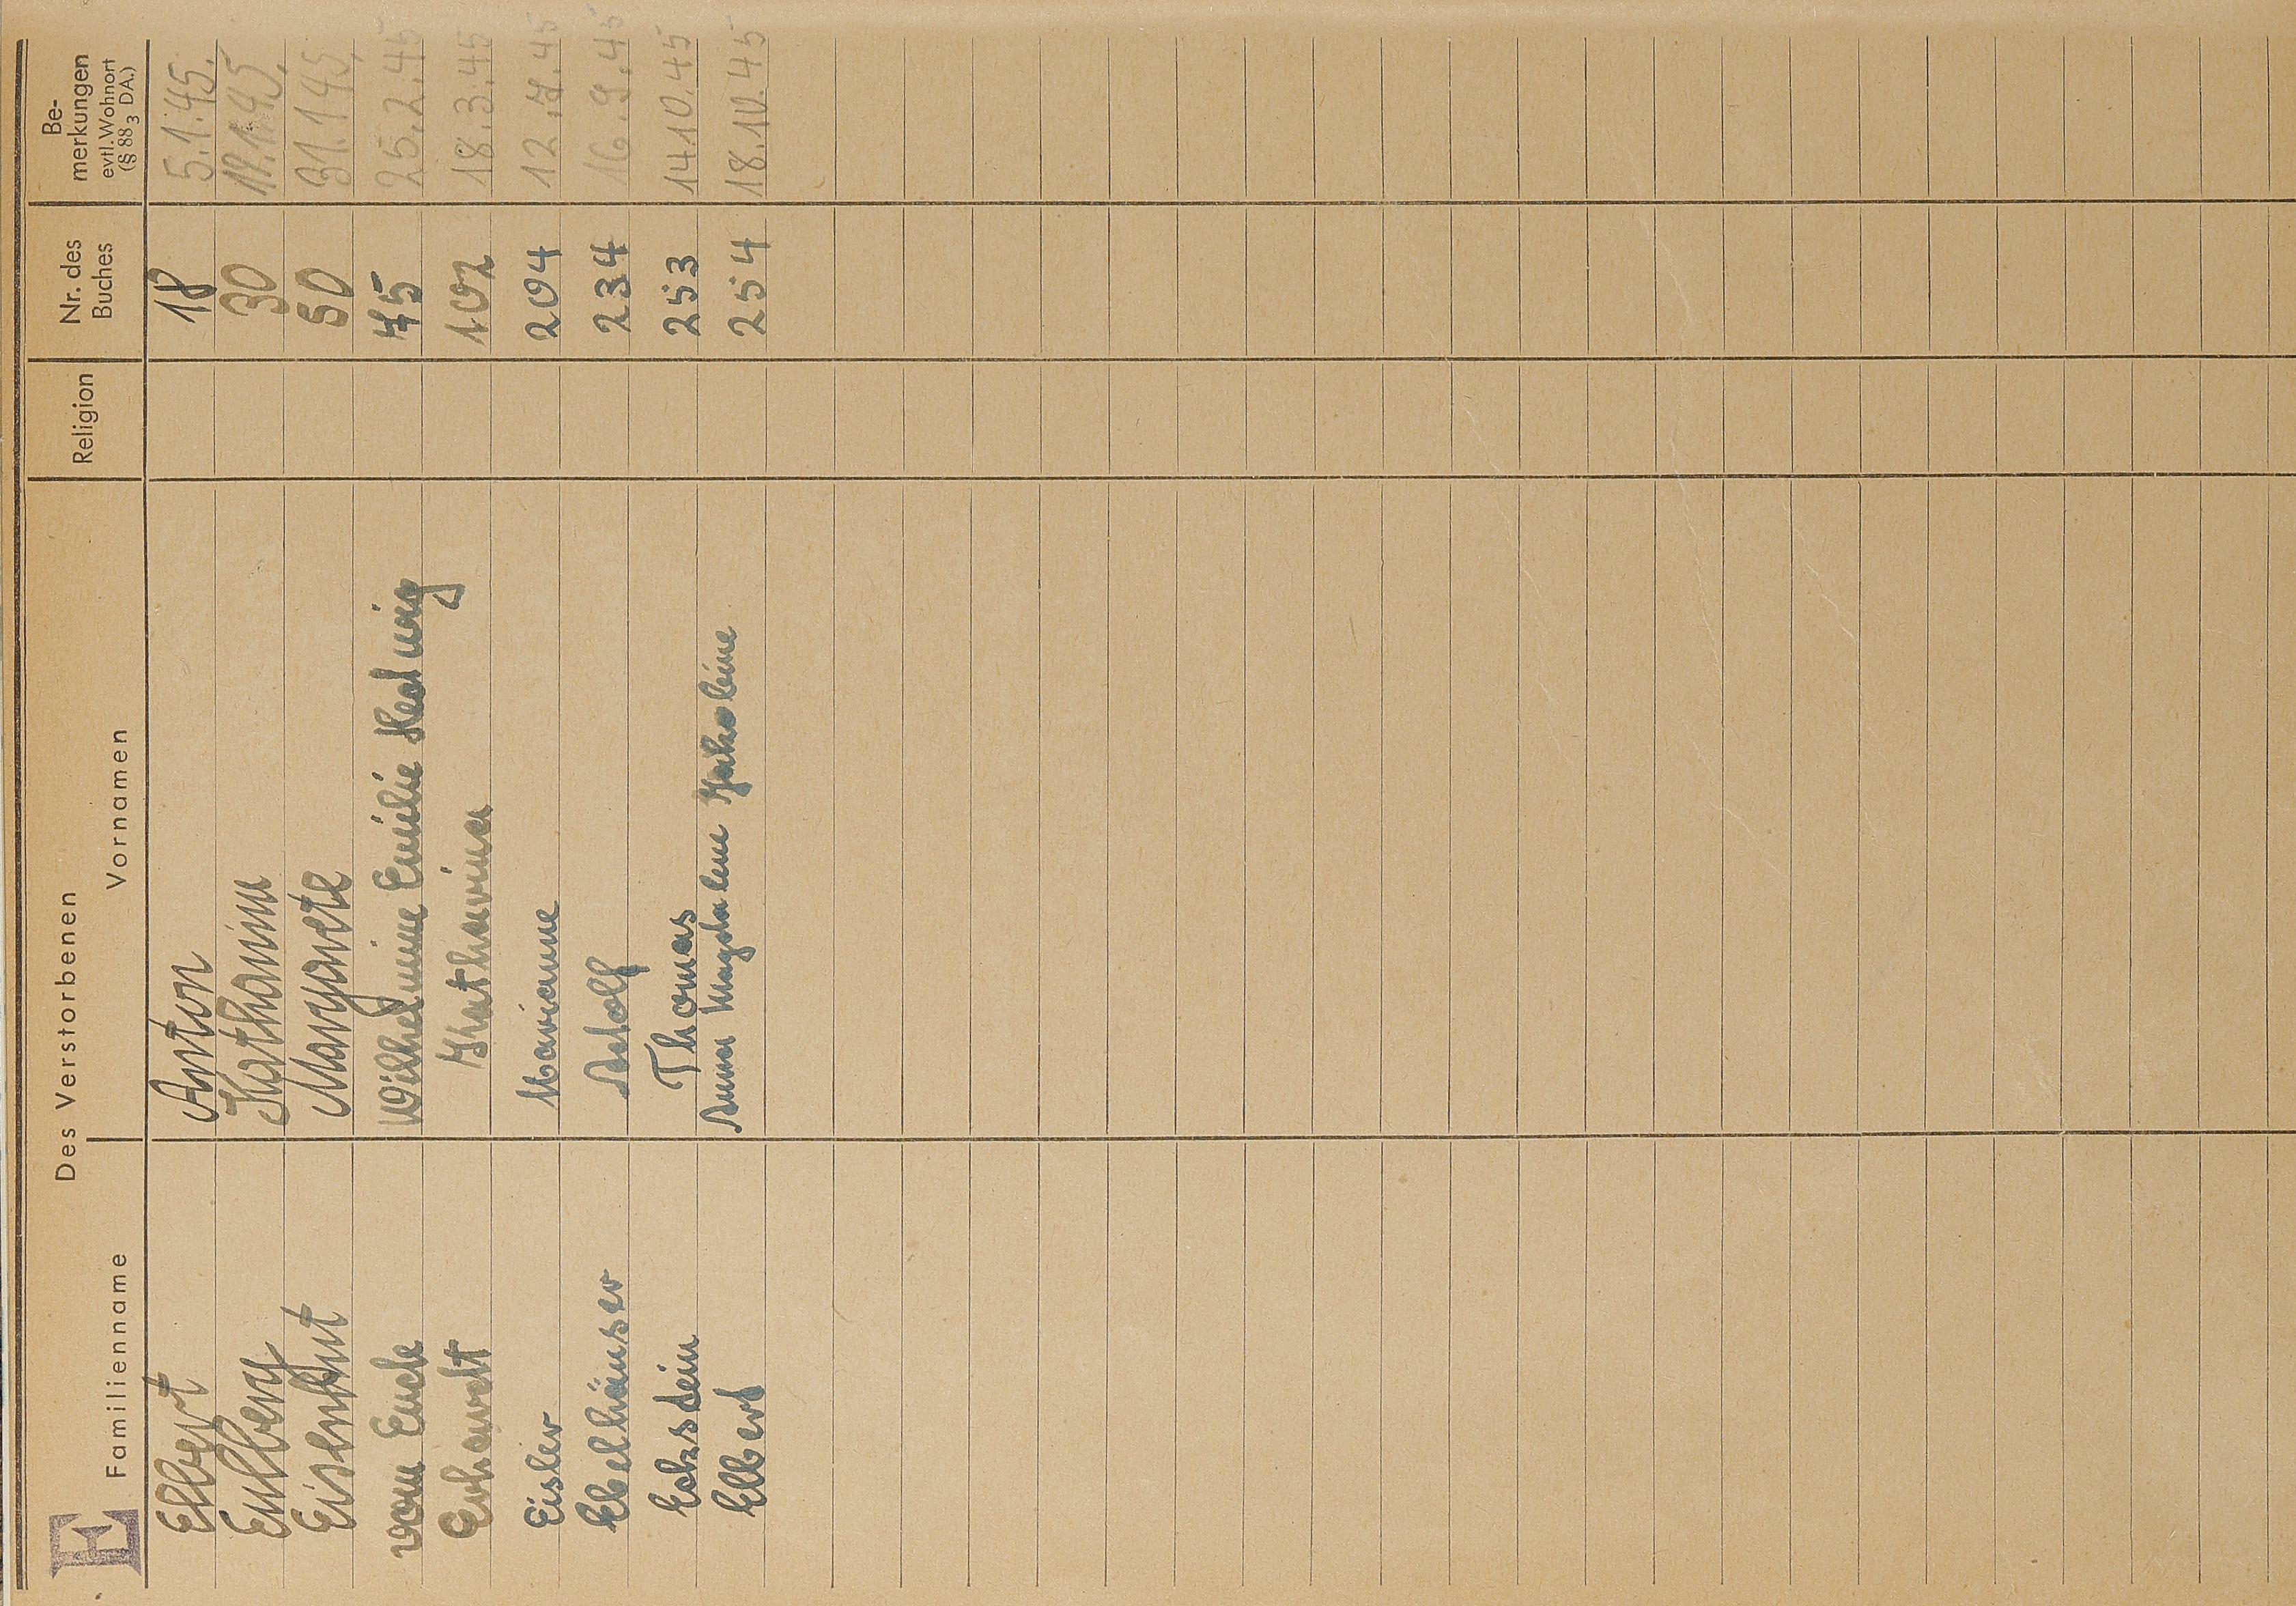 E
Des Verstorbenen
Familienname
Vornamen
Religion
Nr. des
Buches
Be-
merkungen
evtl. Wohnort
(§ 88₃ DA.)
Elbert Anton 18 5.1.45.
Eulberg Katharina 30 19.1.45.
Eisenhut Margarete 50 31.1.45.
vom Ende Wilhelmine Emilie Hedwig 75 25.2.45
Erhardt Katharina 102 18.3.45
Eisler Marianne 204 12.7.45
Ebelhäuser Adolf 234 16.9.45
Eckstein Thomas 253 14.10.45
Elbert Anna Magdalena Jakobine 254 18.10.45